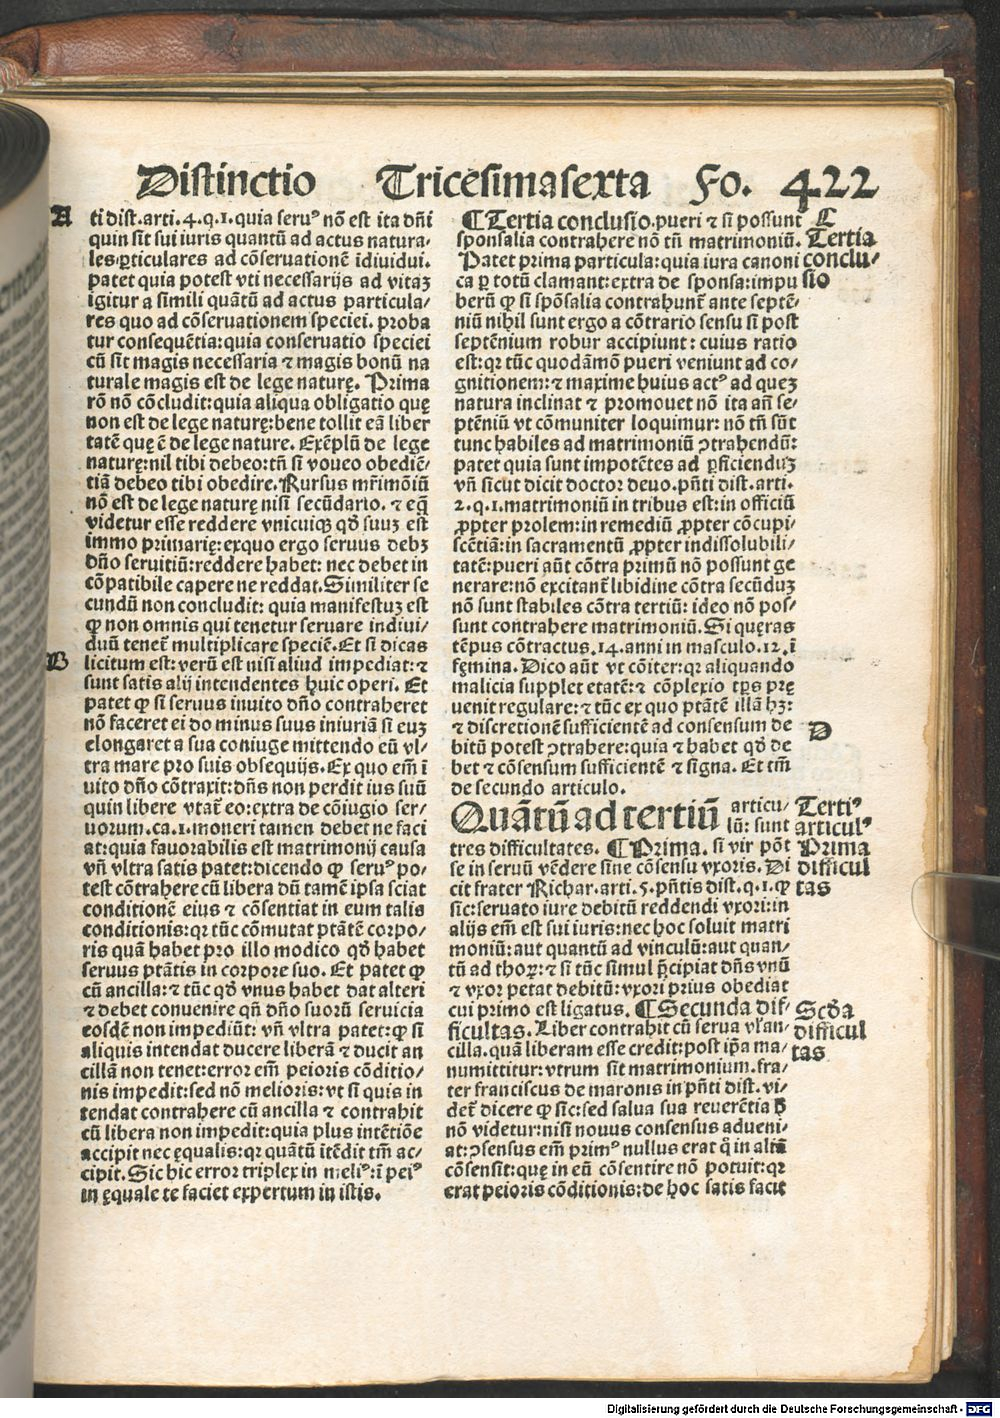 Distinctio Tricesimasexta Fo. 422
A
ti dist. arti. 4. q. 1. quia seruꝰ nō est ita dn̄i
quin sit sui iuris quantū ad actus natura⸗
les. ꝑticulares ad cōseruationem īdiuidui.
patet quia potest vti necessarijs ad vitaꝫ
igitur a simili quātū ad actus particula⸗
res quo ad cōseruationem speciei. proba
tur consequētia: quia conseruatio speciei
cū sit magis necessaria ⁊ magis bonū na
turale magis est de lege naturę. Prima
rō nō cōcludit: quia aliqua obligatio quę
non est de lege naturę: bene tollit eā liber
tatē quę ē de lege nature. Exēplū de lege
naturę: nil tibi debeo: tn̄ si voueo obediē⸗
tiā debeo tibi obedire. Rursus mr̄imōiū
nō est de lege naturę nisi secūdario. ⁊ eq̄
videtur esse reddere vnicuiqꝫ qð suuꝫ est
immo primarię: exquo ergo seruus debꝫ
dn̄o seruitiū: reddere habet: nec debet in
cōpatibile capere ne reddat. Similiter se
cundū non concludit: quia manifestuꝫ est
ꝙ non omnis qui tenetur seruare indiui⸗
duū tenet̄ multiplicare speciē. Et si dicas
B
licitum est: verū est nisi aliud impediat: ⁊
sunt satis alij intendentes huic operi. Et
patet ꝙ si seruus inuito dn̄o contraheret
nō faceret ei do minus suus iniuriā si euꝫ
elongaret a sua coniuge mittendo eū vl⸗
tra mare pro suis obsequijs. Ex quo em̄ ī
uito dn̄o cōtraxit: dn̄s non perdit ius suū
quin libere vtat̄ eo: extra de cōiugio ser⸗
uorum. ca. 1. moneri tamen debet ne faci
at: quia fauorabilis est matrimonij causa
vn̄ vltra satis patet: dicendo ꝙ seruꝰ po⸗
test cōtrahere cū libera dū tamē ipsa sciat
conditionē eius ⁊ cōsentiat in eum talis
conditionis: qr tūc cōmutat ptātē corpo⸗
ris quā habet pro illo modico qð habet
seruus ptātis in corpore suo. Et patet ꝙ
cū ancilla: ⁊ tūc qð vnus habet dat alteri
⁊ debet conuenire qn̄ dn̄o suorū seruicia
eosdē non impediūt: vn̄ vltra patet: ꝙ si
aliquis intendat ducere liberā ⁊ ducit an
cillā non tenet: error em̄ peioris cōditio⸗
nis impedit: sed nō melioris: vt si quis in
tendat contrahere cū ancilla ⁊ contrahit
cū libera non impedit: quia plus intētiōe
accipit nec ęqualis: qr quātū itēdit tm̄ ac⸗
cipit. Sic hic error triplex in meliꝰ: ī peiꝰ
in ęquale te faciet expertum in istis.
¶ Tertia conclusio. pueri ⁊ si possunt
C
Tertia
conclu⸗
sio
sponsalia contrahere nō tn̄ matrimoniū.
Patet prima particula: quia iura canoni
ca ꝑ totū clamant: extra de sponsa: impu
berū ꝙ si spōsalia contrahunt̄ ante septē⸗
niū nihil sunt ergo a cōtrario sensu si post
septēnium robur accipiunt: cuius ratio
est: qr tūc quodāmō pueri veniunt ad co⸗
gnitionem: ⁊ maxime huius actꝰ ad queꝫ
natura inclinat ⁊ promouet nō ita an̄ se⸗
ptēniū vt cōmuniter loquimur: nō tn̄ sūt
tunc habiles ad matrimoniū ꝯtrahendū:
patet quia sunt impotētes ad ꝑficienduꝫ
vn̄ sicut dicit doctor deuo. pn̄ti dist. arti.
2. q. 1. matrimoniū in tribus est: in officiū
ꝓpter prolem: in remediū ꝓpter cōcupi⸗
scētiā: in sacramentū ꝓpter indissolubili⸗
tatē: pueri aūt cōtra primū nō possunt ge
nerare: nō excitant̄ libidine cōtra secūduꝫ
nō sunt stabiles cōtra tertiū: ideo nō pos⸗
sunt contrahere matrimoniū. Si quęras
tēpus cōtractus. 14. anni in masculo. 12. ī
fęmina. Dico aūt vt cōiter: qr aliquando
malicia supplet etatē: ⁊ cōplexio tp̄s prę
uenit regulare: ⁊ tūc ex quo ptātē illā hꝫ:
⁊ discretionē sufficientē ad consensum de
D
bitū potest ꝯtrahere: quia ⁊ habet qð de
bet ⁊ cōsensum sufficientē ⁊ signa. Et tm̄
de secundo articulo.
Quātū ad tertiū articu⸗
lū: sunt
Tertiꝰ
articulꝰ
tres difficultates. ¶ Prima. si vir pōt
Prima
difficul
tas
se in seruū vēdere sine cōsensu vxoris. Di
cit frater Richar. arti. 5. pn̄tis dist. q. 1. ꝙ
sic: seruato iure debitū reddendi vxori: in
alijs em̄ est sui iuris: nec hoc soluit matri
moniū: aut quantū ad vinculū: aut quan⸗
tū ad thoꝝ: ⁊ si tūc simul p̄cipiat dn̄s vnū
⁊ vxor petat debitū: vxori prius obediat
cui primo est ligatus. ¶ Secunda dif⸗
Scða
difficul
tas
ficultas. Liber contrahit cū serua vꝉ an⸗
cilla. quā liberam esse credit: post ip̄a ma⸗
numittitur: vtrum sit matrimonium. fra⸗
ter franciscus de maronis in pn̄ti dist. vi⸗
det̄ dicere ꝙ sic: sed salua sua reuerētia ħ
nō videtur: nisi nouus consensus adueni⸗
at: ꝯsensus em̄ primꝰ nullus erat q̄ in aliā
cōsensit: quę in eū cōsentire nō potuit: qr
erat peioris cōditionis: de hoc satis facit
Digitalisierung gefördert durch die Deutsche Forschungsgemeinschaft - DFG